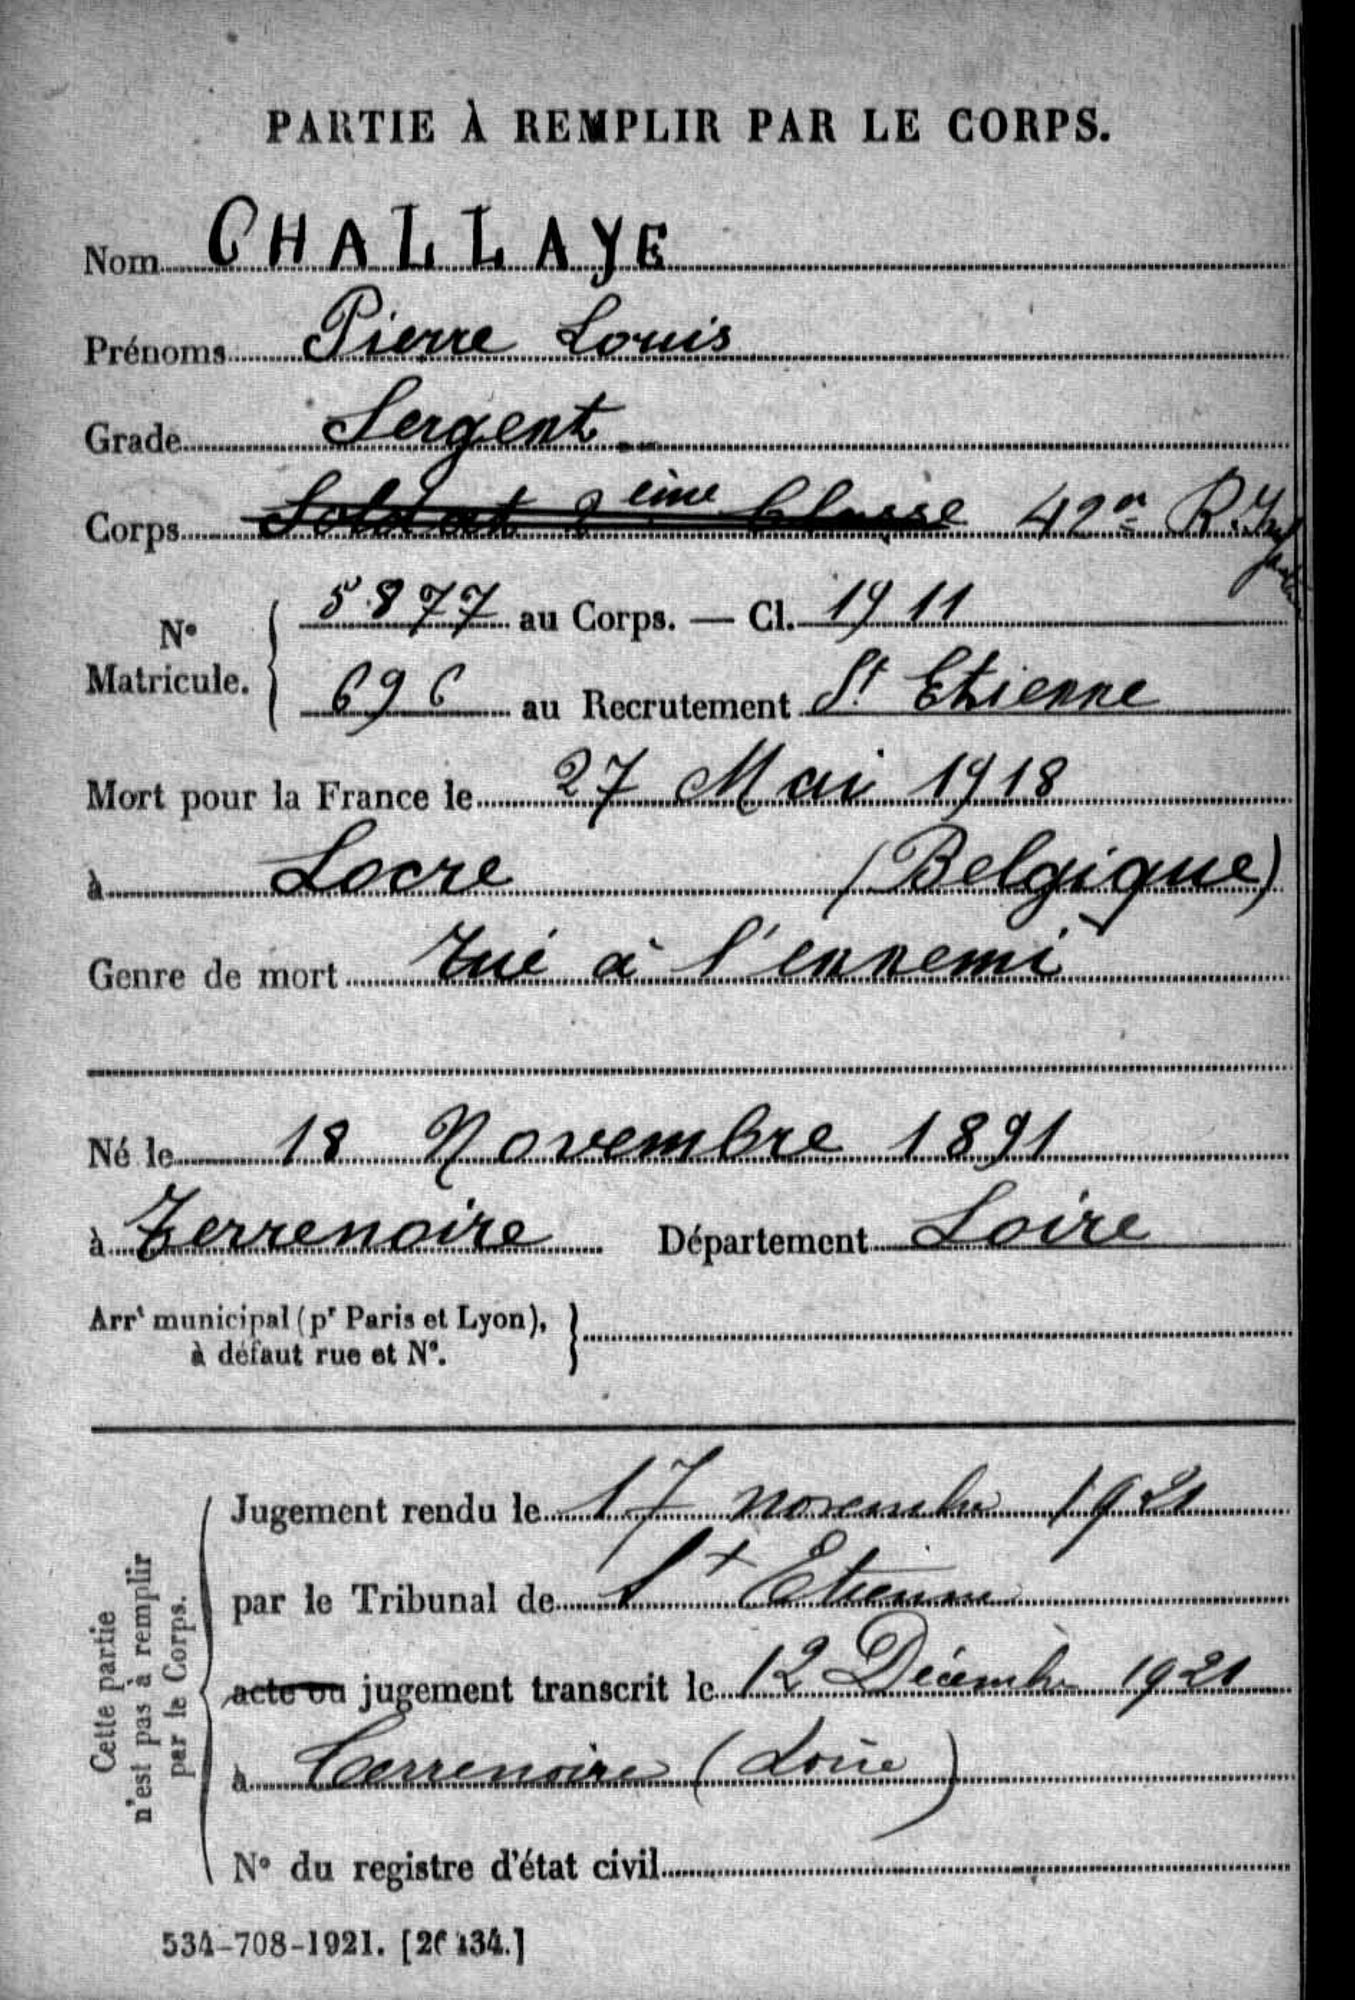 PARTIE À REMPLIR PAR LE CORPS.
Nom CHALLAYE
Prénoms Pierre Louis
Grade Sergent
Corps Soldat 2ème Classe 42e R. Inf
N° Matricule. 5877 au Corps. — Cl. 1911
696 au Recrutement St Etienne
Mort pour la France le 27 Mai 1918
à Locre (Belgique)
Genre de mort tué à l'ennemi
Né le 18 Novembre 1891
à Terrenoire Département Loire
Arrt municipal (pr Paris et Lyon),
à défaut rue et N°.
Cette partie
n'est pas à remplir
par le Corps.
Jugement rendu le 17 novembre 1921
par le Tribunal de St Etienne
acte ou jugement transcrit le 12 Décembre 1921
à Terrenoire (Loire)
N° du registre d'état civil
534-708-1921.